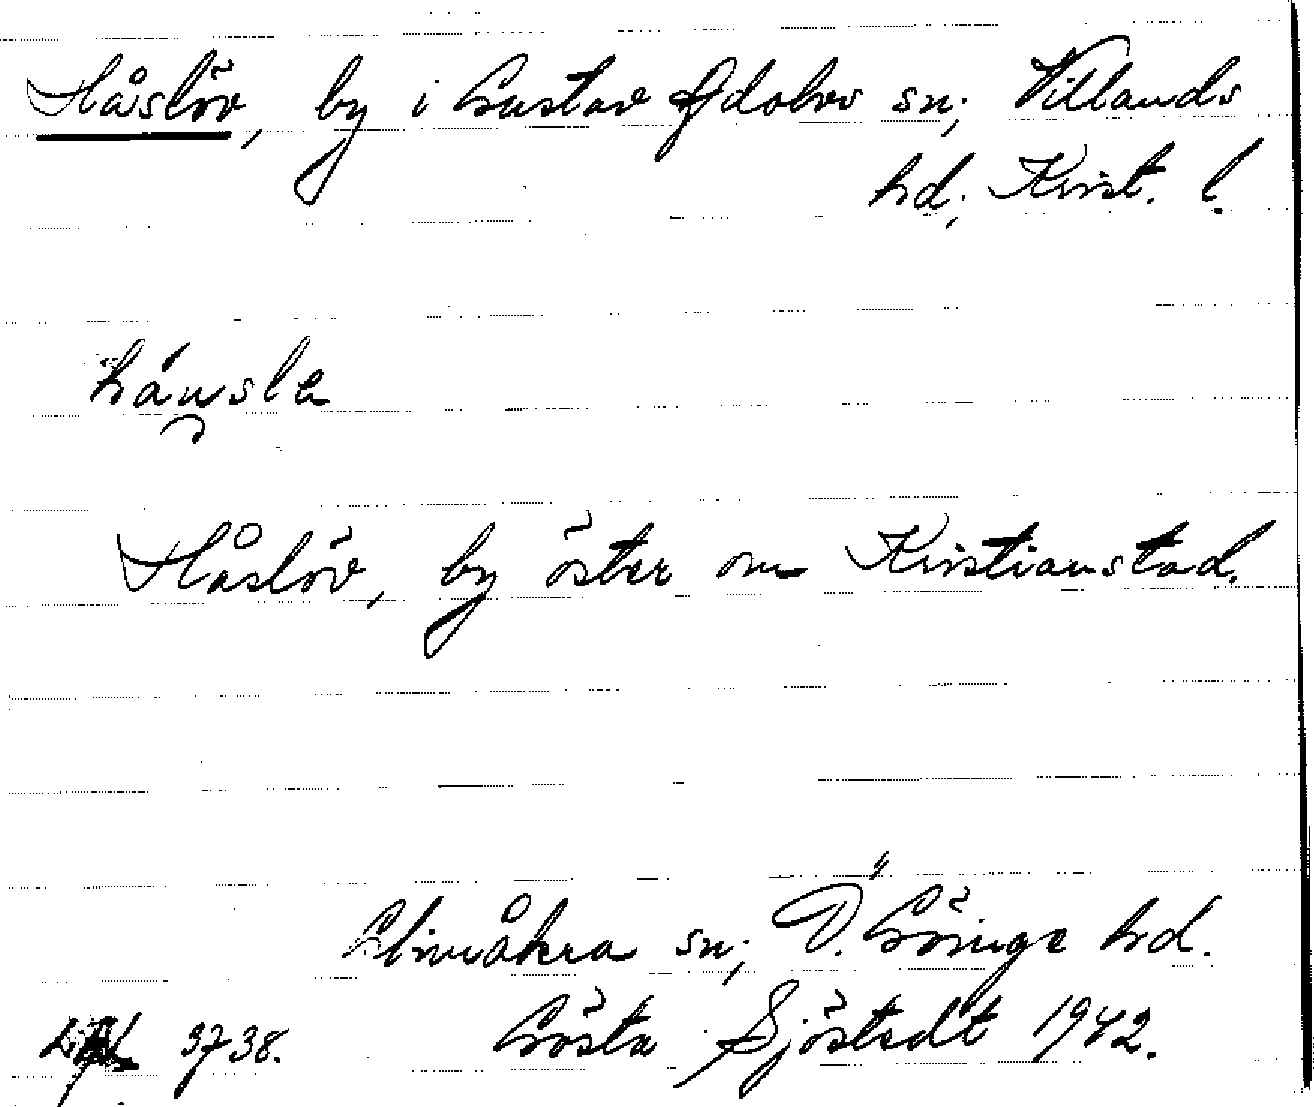 Håslöv, by i Gustav Adolvs sn; Villands
hd; Krist. l.
Håslöv, by öster om Kristianstad.
Glimåkra sn; Ö. Göinge hd.
3738. Gösta Sjöstedt 1942.